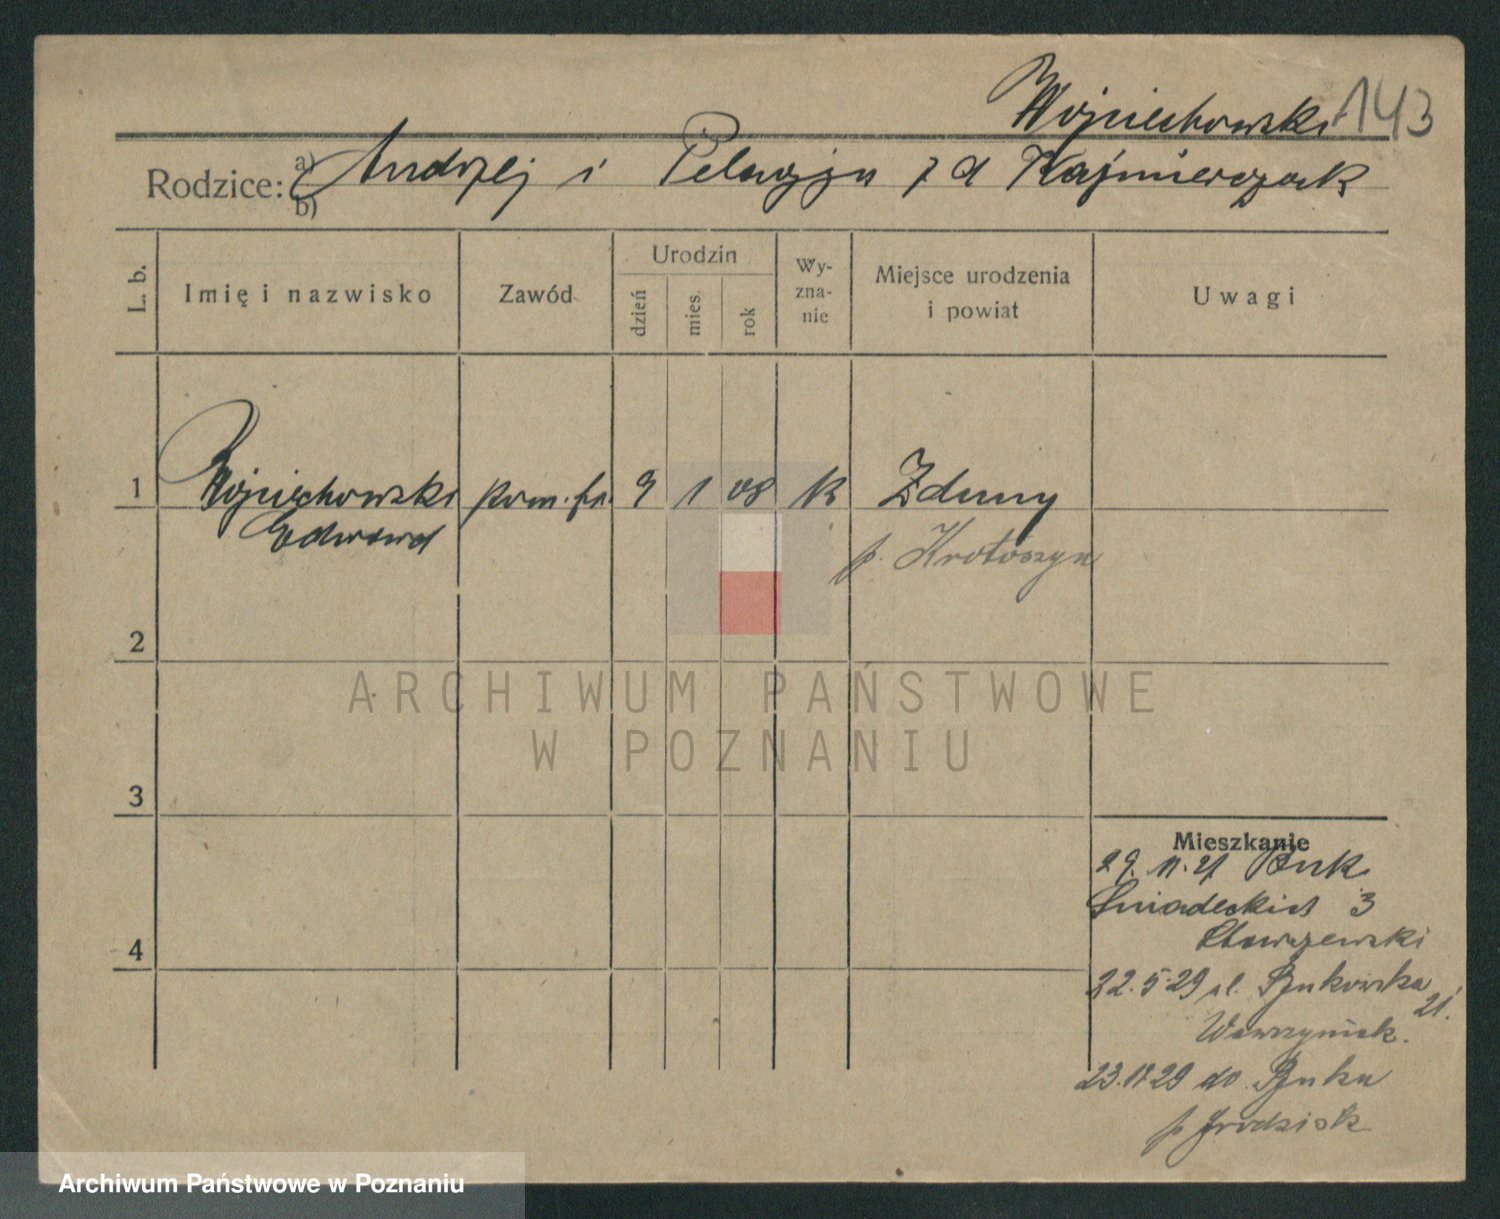 Wojciechowski 143
Rodzice: a) Andrzej i Pelagja z d Kaźmierczak
b)
L. b. Imię i nazwisko Zawód Urodzin dzień mies. rok Wy-zna-nie Miejsce urodzenia i powiat Uwagi
1 Wojciechowski pom. 9 1 08 k Zduny
Edward p. Krotoszyn
2
ARCHIWUM PAŃSTWOWE
W POZNANIU
3
Mieszkanie
29. 11. Buk
Śniadeckich 3
4
22. 5. 29 ul. Bukowska 21.
Wawrzyniak.
23. 29 do Buku
p Grodzisk
Archiwum Państwowe w Poznaniu